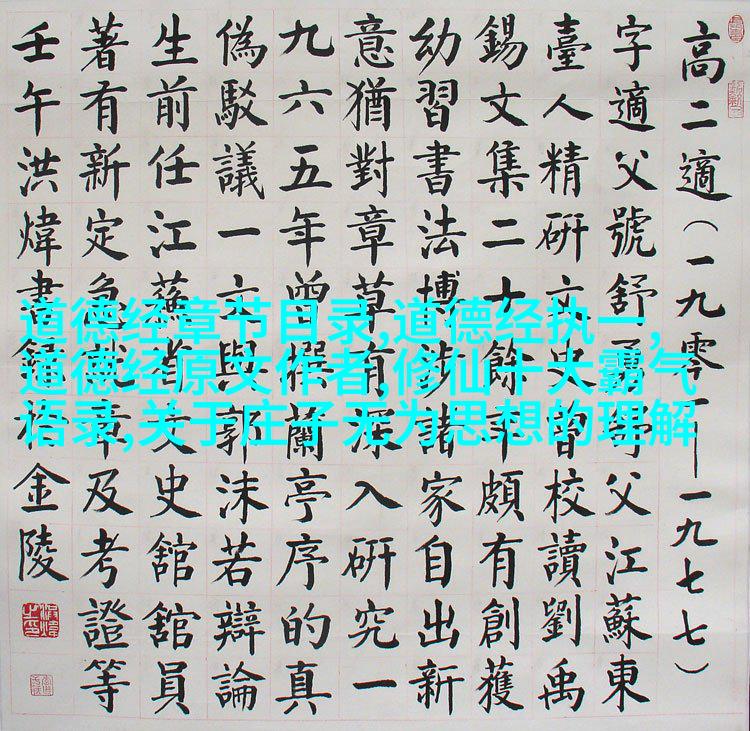 高二適（一九零一一九七七）
字適父號舒鳧父江蘇東
臺人精研文史曾校讀劉禹
錫文集二十餘年頗有創獲
幼習書法博涉諸家自出新
意猶對章草有深入研究一
九六五年曾撰蘭亭序的真
偽駁議一文與郭沫若辯論
生前任江蘇省文史館館員
著有新定急就章及考證等
壬午洪煒書錄於金陵
道德经章节目录,道德经执一,
道德经原文作者,修仙十大霸气
语录,关于庄子无为思想的理解